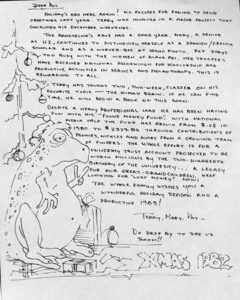 Dear All
Holiday's are here again! No excuses for failing to send
greetings last year. Terry was involved in a major project that
consumed his December undivided.
The Armentrout's have had a good year. Mary, a senior
at UI, continues to distinguish herself as a Spanish/Service
scholar and as a waterer-bar at Gringo's. Pat stays
too busy with the women of Alpha Phi. The troopers
have received national recognition for worldwide and
productive activities in service and philanthropy. This is
rewarding to all.
Terry has taught two, two-week, classes on his
favorite topic the human brain. If he can find
time, he will begin a book on this soon.
Despite a heavy professional load he has been having
fun with his "Found Money Fund". With national
media help the fund has grown from
in 1980 to through contributions of
pennies, nickels and dimes from a growing crowd
of finders. The whole effort is for a
University Trust Account projected to be
worth millions by the Two-Hundredth
Birthday of the University... a legacy
for our great-grandchildren. Keep
looking for "lost money" and
The whole family wishes you a
wonderful holiday season and a
productive 1983!
Terry, Mary, Pat
Do drop by to see us
soon!!
XMAS 1982